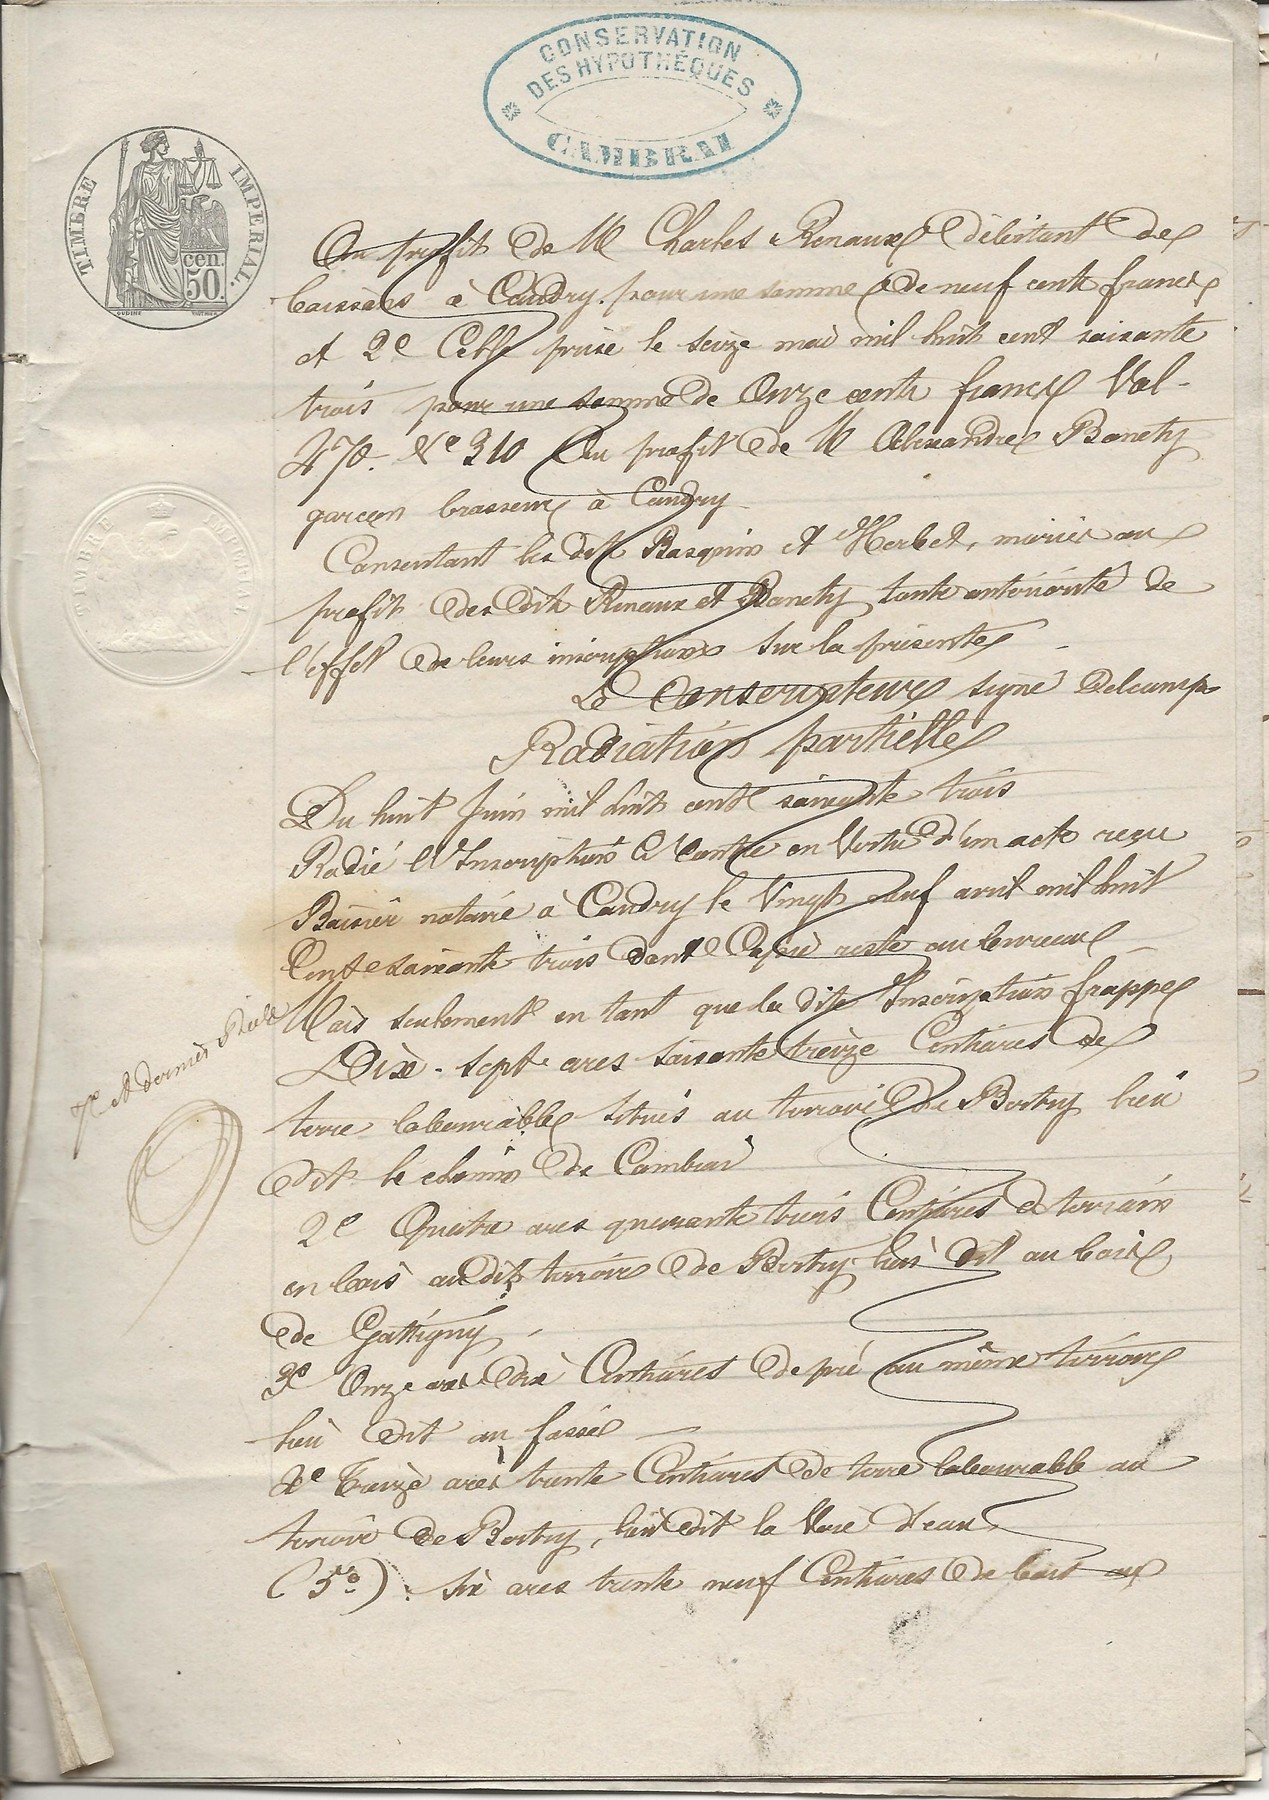 CONSERVATION
DES HYPOTHÉQUES
CAMBRAI
TIMBRE IMPERIAL.
cen.
50.
TIMBRE IMPERIAL
Au profit de M Charles Renaux débitant de
boissons à Caudry. pour une somme de neuf cents francs
et 2e Celle prise le seize mai mil huit cent soixante
trois pour une somme de Onze cents francs Vol.
470. No 310 Au profit de M Alexandre Banéty
garçon brasseur à Caudry
Consentant les dits Basquin et Herbet, mariés au
profit des dits Renaux et Banéty toute antériorité de
l'effet de leurs inscriptions sur la présente
Le Conservateur signé Delcamp
Radiation partielle
Du huit Juin mil huit cent soixante trois
Radié l'Inscription Ci Contre en Vertu d'un acte reçu
notaire à Caudry le Vingt neuf avril mil huit
Cent soixante trois dont Copie reste au bureau
Mais seulement en tant que la dite Inscription frappe
Dix-sept ares soixante treize Centiares de
terre labourable situés au terroir de Bertry lieu
dit le chemin de Cambrai
2e Quatre ares quarante trois Centiares de terrain
en bois au dit terroir de Bertry lieu dit au bois
de Gattigny
3e Onze ares dix Centiares de pré au même terroir
lieu dit au fossé
4e Treize ares trente Centiares de terre labourable au
terroir de Bertry, lieu dit la Voie d'eau
(5o). six ares trente neuf Centiares de bois au
7e et dernier Rôle